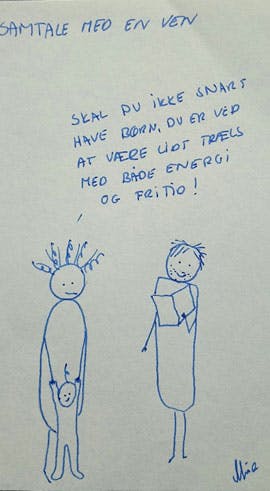 SAMTALE MED EN VEN
SKAL DU IKKE SNART
HAVE BØRN, DU ER VED
AT VÆRE LIDT TRÆLS
MED BÅDE ENERGI
OG FRITID!
Mia